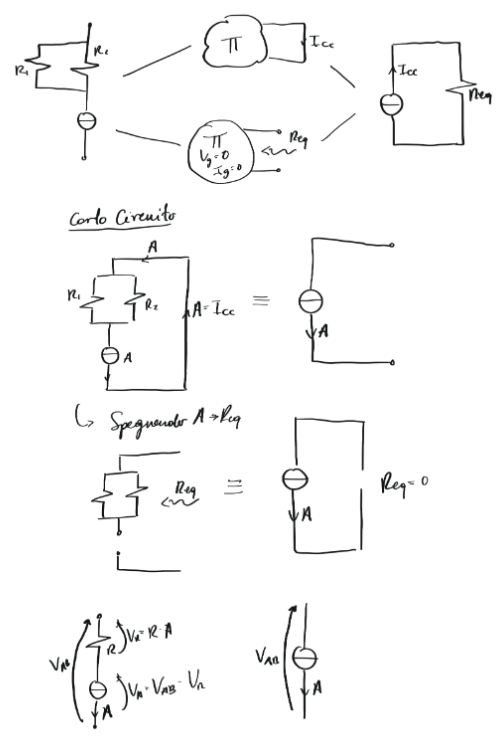 R₁
R₂
π
Icc
π
Vg=0
Ig=0
Req
Icc
Req
Corto Circuito
A
R₁
R₂
A
A=Icc
≡
A
↳ Spegnendo A→Req
Req
≡
A
Req=0
VAB
R
VR=R·A
VA=VAB-VR
A
VAB
A